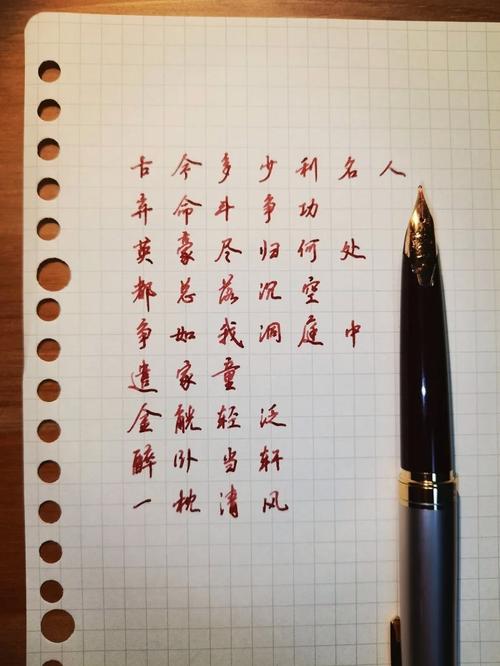 古今多少利名人
弃命斗争功
英豪尽归何处
都总落沉空
争如我洞庭中
遣家童
金觥轻泛
醉卧当轩
一枕清风